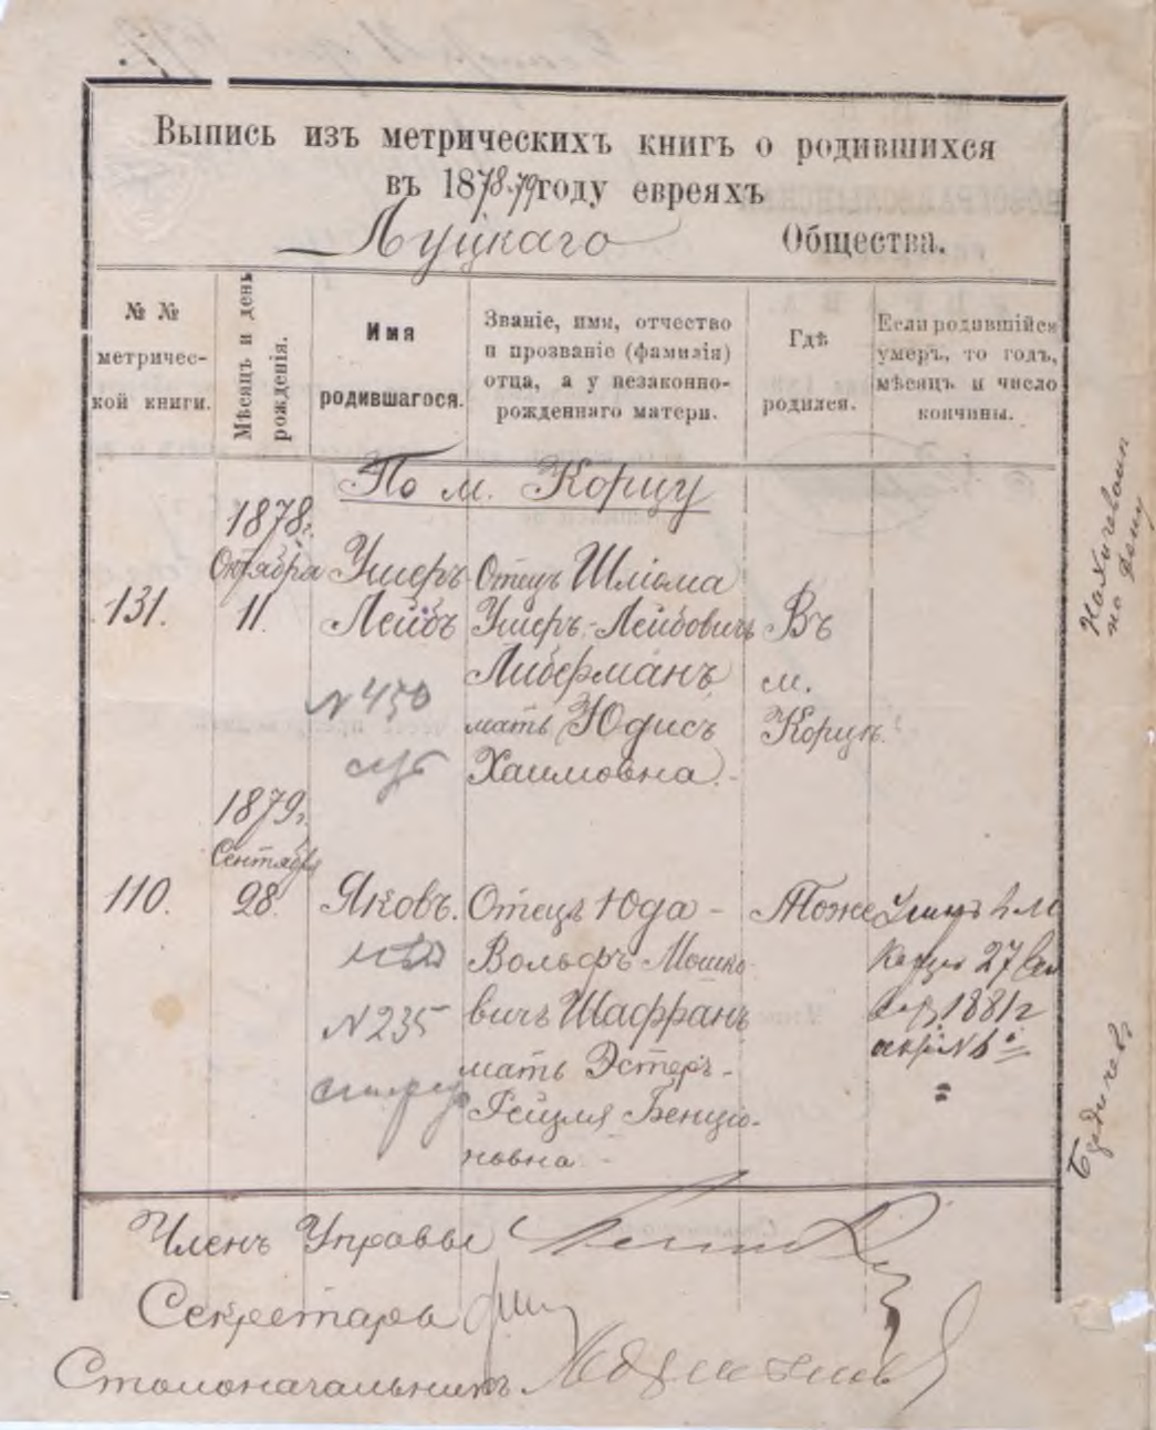 Выпись изъ метрическихъ книгъ о родившихся
въ 1878-79 году евреяхъ
Луцкаго Общества.
№ №
метричес-
кой книги.
Мѣсяцъ и день
рожденія.
Имя
родившагося.
Званіе, имя, отчество
и прозваніе (фамилія)
отца, а у незаконно-
рожденнаго матери.
Гдѣ
родился.
Если родившійся
умеръ, то годъ,
мѣсяцъ и число
кончины.
По м. Корцу
131.
1878г.
Октября
11.
Ушеръ
Лейбъ
N 450
Отецъ Шліома
Ушеръ-Лейбовичъ
Либерманъ
мать Юдисъ
Хаимовна.-
Въ
м.
Корцѣ.
110.
1879г.
Сентября
28.
Яковъ.
N 235
Отецъ Юда-
Вольфъ Мошко-
вичъ Шафранъ
мать Эстеръ-
Рейзля Бенціо-
новна.-
Тоже
Умеръ въ м
Корцѣ 27
1881г
Членъ Управы
Секретарь
Столоначальникъ